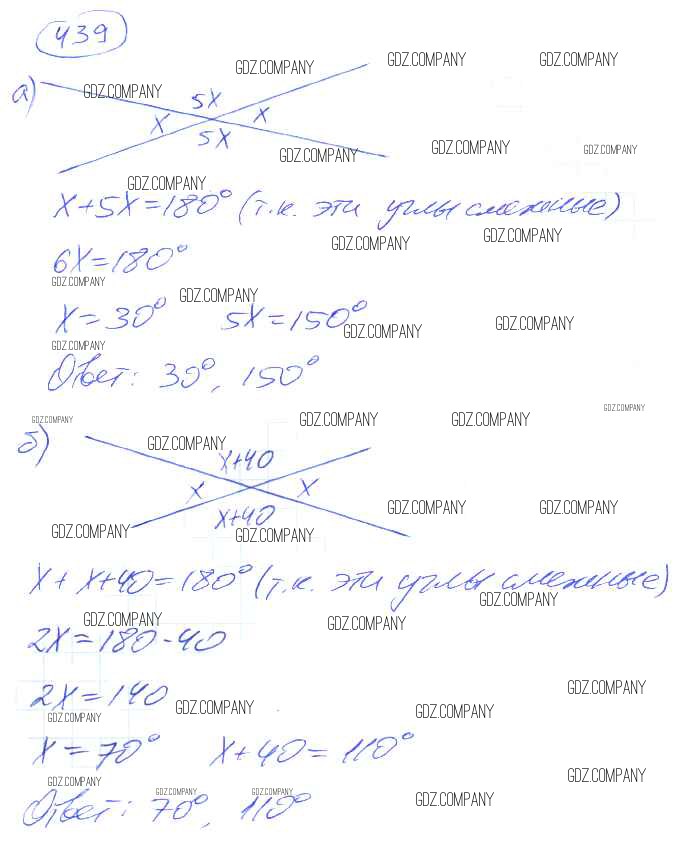 439
GDZ.COMPANY GDZ.COMPANY GDZ.COMPANY
а) GDZ.COMPANY
5x
x x
5x
GDZ.COMPANY GDZ.COMPANY GDZ.COMPANY
GDZ.COMPANY
x+5x=180° (т.к. эти углы смежные)
GDZ.COMPANY GDZ.COMPANY
6x=180°
GDZ.COMPANY GDZ.COMPANY
x=30° 5x=150°
GDZ.COMPANY GDZ.COMPANY
GDZ.COMPANY
Ответ: 30°, 150°
GDZ.COMPANY GDZ.COMPANY GDZ.COMPANY GDZ.COMPANY
б) GDZ.COMPANY
x+40
x x
GDZ.COMPANY GDZ.COMPANY
x+40
GDZ.COMPANY GDZ.COMPANY
x+x+40=180° (т.к. эти углы смежные)
GDZ.COMPANY
GDZ.COMPANY GDZ.COMPANY
2x=180-40
2x=140
GDZ.COMPANY
GDZ.COMPANY GDZ.COMPANY GDZ.COMPANY
x=70° x+40=110°
GDZ.COMPANY GDZ.COMPANY
GDZ.COMPANY GDZ.COMPANY GDZ.COMPANY
Ответ: 70°, 110°